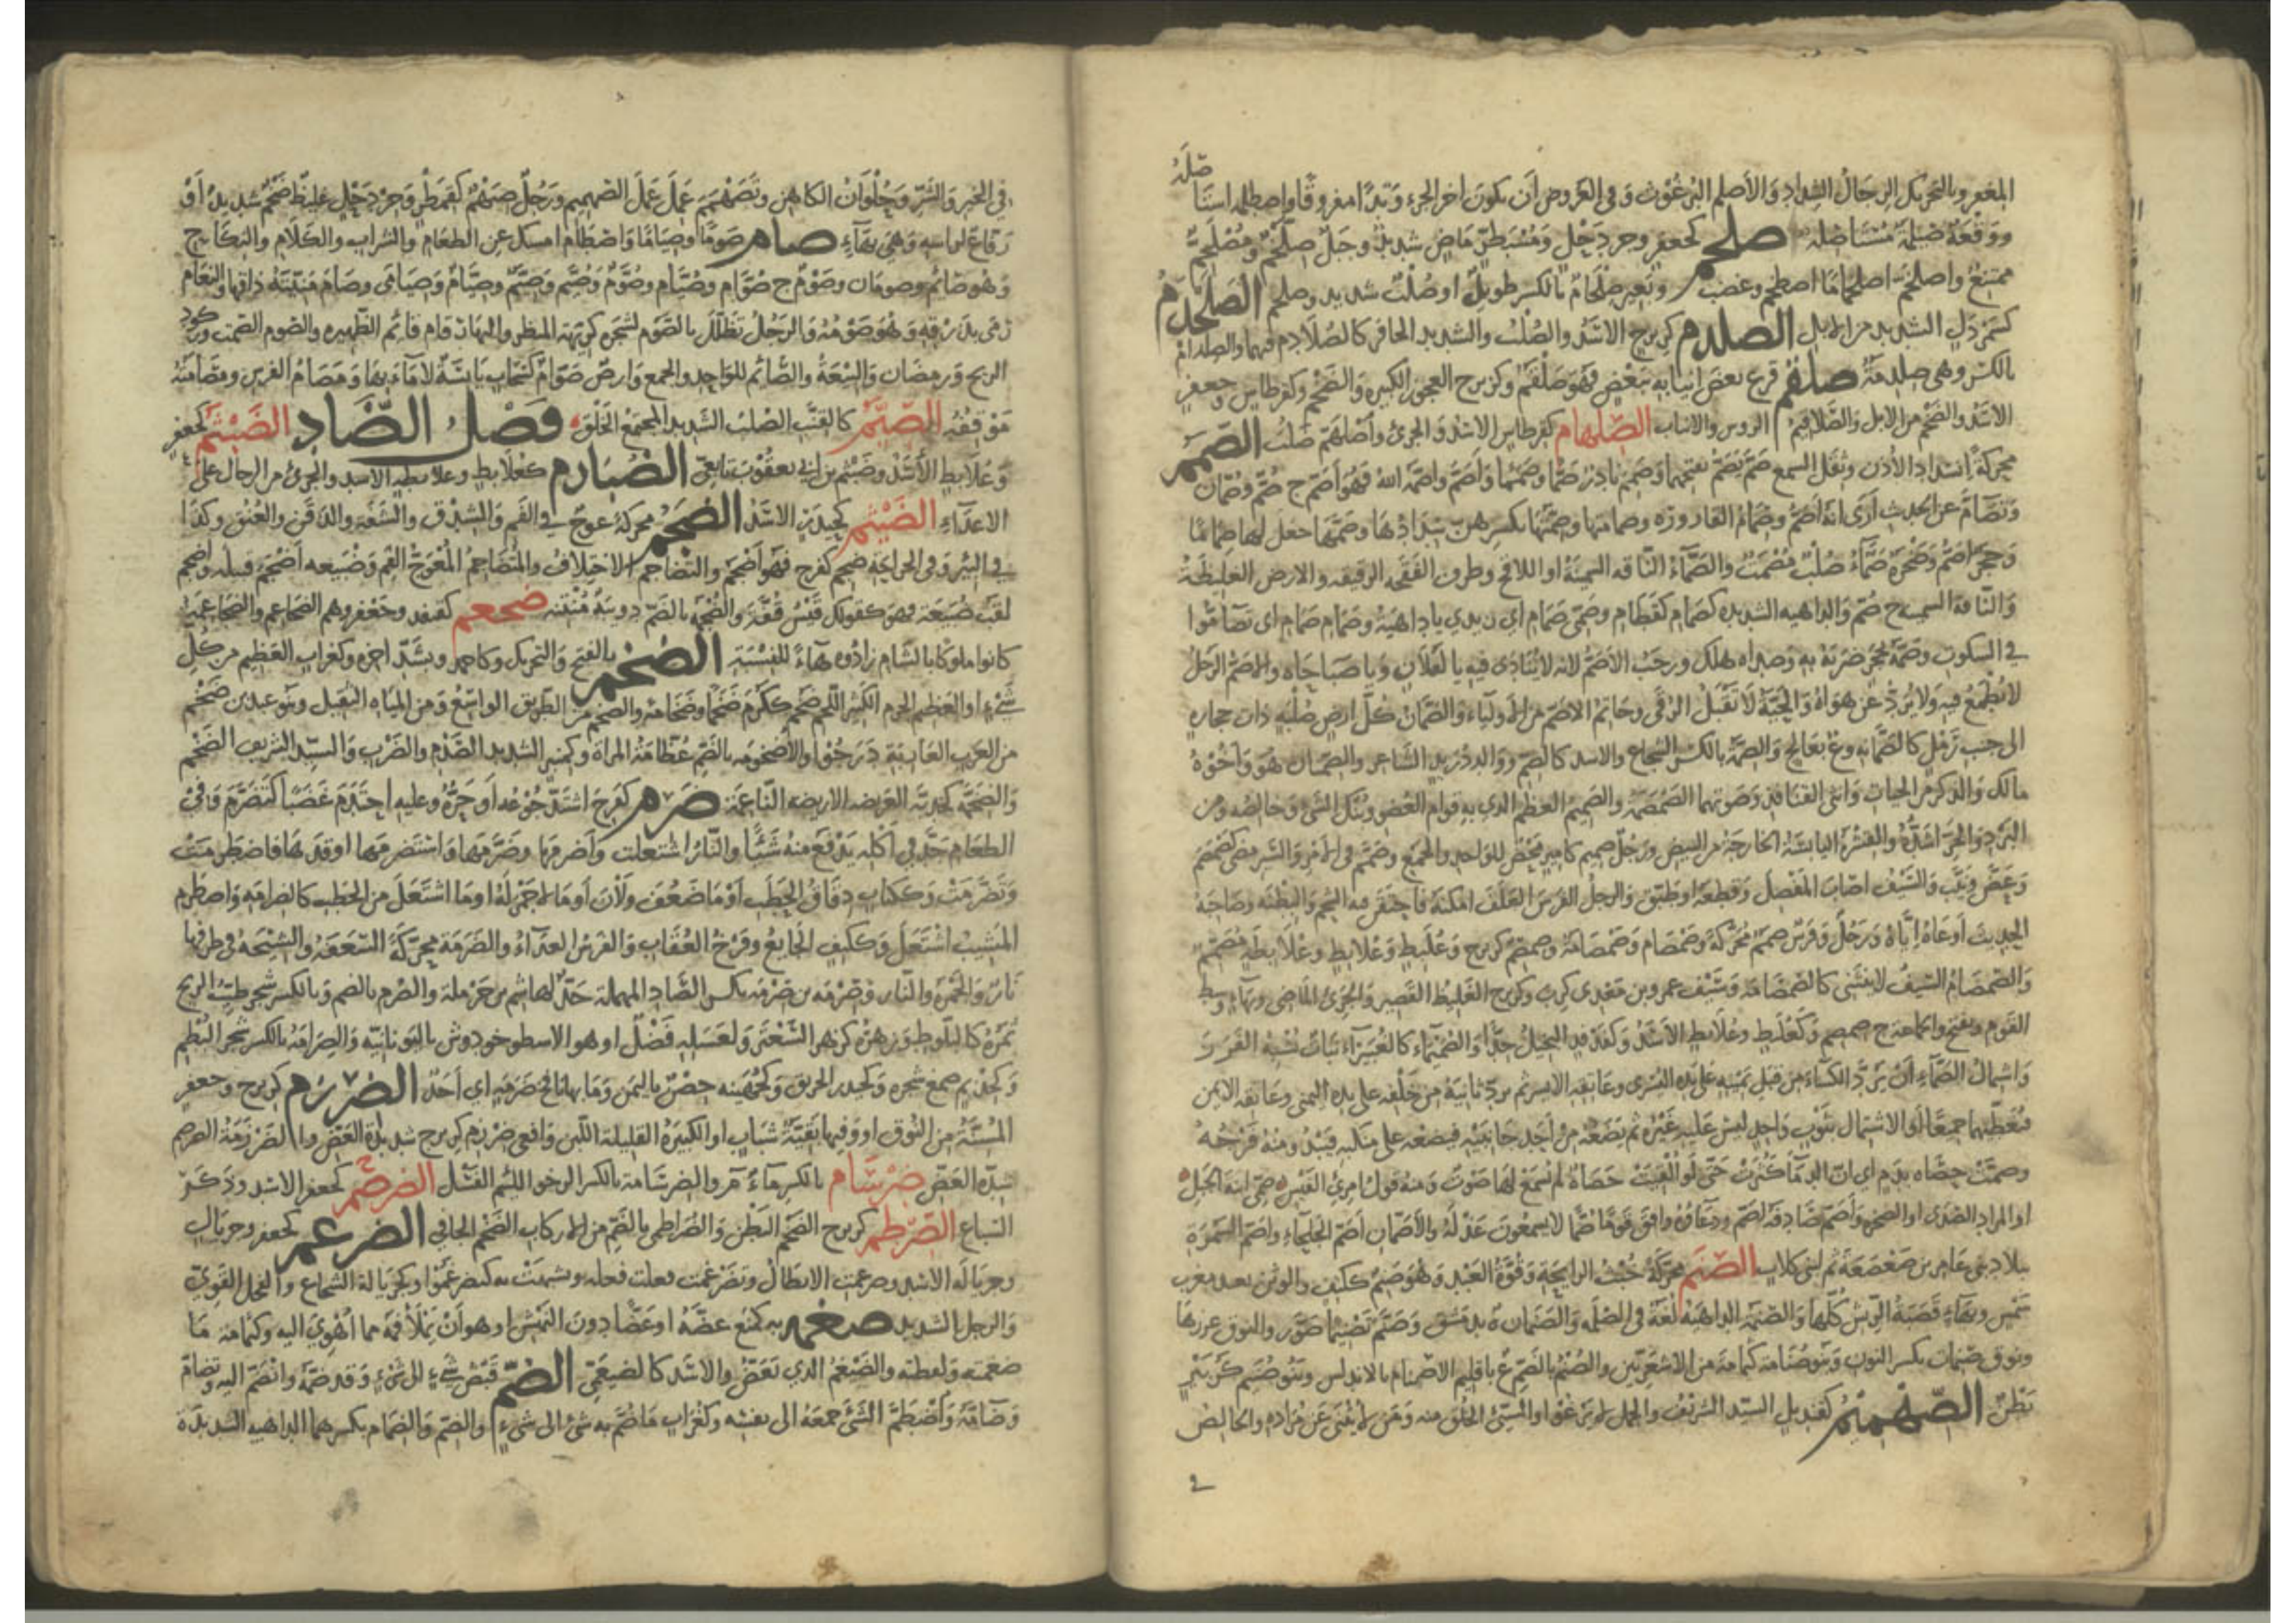 المغفر وبالتحريك الرجال الشداد والأصلم البرغوث وفي العروض أن يكون آخر الجزء وتدا مفروقا واصطلمه استأ
صله
ووقعة صيلمة مستأصلة صلخم كجعفر وجردحل ومسبطر ماض شديد وجبل صلخم ومصلخم
ممتنع واصلخم اصلخماما اصطخم وغضب وبعير صلخام بالكسر طويل او صلب شديد وصلخم الصلخدم
الشديد من الابل الصلدم كزبرج الاسد والصلب والشديد الحافر كالصلادم فيهما والصلدام
بالكسر وهي صلدمة صلقم قرع بعض انيابه ببعض فهو صلقم وكزبرج العجوز الكبيرة والضخم وكقرطاس وجعفر
الاسد والضخم من الابل والصلاقيم الروس والانياب الصلهام كقرطاس الاسد والجرئ واصلهم صلب الصمم
محركة انسداد الأذن وثقل السمع صم يصم بفتحهما وصمم نادر صما وصمما واصم واصمه الله فهو اصم ج صم وصمان
وتصام عن الحديث أرى انه أصم وصمام القارورة وصمامتها وصمتها بكسرهن سدادها وصمها جعل لها صماما
وحجر أصم وصخرة صماء صلب مصمت والصماء الناقة السمينة او اللاقح وطرف الفقحة الرقيقة والارض الغليظة
والداهية الشديدة كصمام كقطام وصمي صمام اي زيدي يا داهية وصمام صمام اي تصاموا
في السكوت وصمه بحجر ضربه به وصداه هلك ورجب الأصم لانه لا ينادى فيه يا لفلان ويا صباحاه والاصم الرجل
لا يطمع فيه ولا يرد عن هواه والحية لا تقبل الرقى وحاتم الاصم من الاولياء والصمان كل ارض صلبة ذات حجارة
الى جنب رمل كالصمانة وع بعالج والصمة بالكسر الشجاع والاسد كالصم ووالد دريد الشاعر والصمتان هو وأخوه
مالك والذكر من الحيات وانثى القنافذ وصوتها الصمصمة والصميم العظم الذي به قوام العضو وبنك الشئ وخالصه ومن
البرد والحر أشده والقشرة اليابسة الخارجة من البيض ورجل صميم كامير محض للواحد والجمع وصمم في الامر والسير مضى كصمصم
وعض ونيب والسيف أصاب المفصل وقطعه او طبق والرجل الفرس العلف امكنه فاحتقن فيه الشحم والبطنة وصاحبه
الحديث أوعاه إياه ورجل وفرس صمم محركة وصمصام وصمصامة وصمصم كزبرج وعلبط وعلابط وعلابطة مصمم
والصمصام السيف لا ينثني كالصمصامة وسيف عمرو بن معدي كرب وكزبرج الغليظ القصير والجرئ الماضي وبهاء وسط
القوم ويفتح والجماعة ج صمصم وكعلبط وعلابط الأسد وكفدفد البخيل جدا والصميماء كالغبيراء نبات شبه الغرز
واشتمال الصماء أن يرد الكساء من قبل يمينه على يده اليسرى وعاتقه الايسر ثم يرد ثانية من خلفه على يده اليمنى وعاتقه الايمن
فيغطيهما جميعا أو الاشتمال بثوب واحد ليس عليه غيره ثم يضعه من أحد جانبيه فيضعه على منكبه فيبدو منه فرجه
وصمت حصاه بدم اي ان الدما كثرت حتى لو القيت حصاة لم يسمع لها صوت ومنه قول امرئ القيس صمي ابنة الجبل
او المراد الصدى او الصخرة وأصم صادفه اصم ودعاؤه وافق قوما صما لا يسمعون عذله والأصمان أصم الجلحاء واصم السمرة
ببلاد بني عامر بن صعصعة ثم لبني كلاب الصنم محركة خبث الرائحة وقوة العبد وهو صنم ككتف والوثن يعبد معرب
شمن وبهاء قصبة الريش كلها والصنمة الداهية لغة في الصلمة والصنمان ة بدمشق وصنم تصنيما صور والنوق غزرها
ونوق صنمات بكسر النون وبنو صنامة كثمامة من الاشعريين والصنم بالضم ع باقليم الاصنام بالاندلس وبنو صنيم كزبير
بطن الصهميم كقنديل السيد الشريف والجمل لا يرغو او السيئ الخلق منه ومن لا يثنى عن مراده والخالص
في الخير والشر وحلوان الكاهن وتصهمم عمل عمل الصهميم ورجل صهم كقمطر وجردحل غليظ ضخم شديد أو
رفاع لراسه وهي بهاء صام صوما وصياما واصطام امسك عن الطعام والشراب والكلام والنكاح
وهو صائم وصومان وصوم ج صوام وصيام وصوم وصيم وصيم وصيام وصيامى وصام منيته ذاقها والنعام
رمى بذرقه وهو صومه والرجل تظلل بالصوم لشجرة كريهة المنظر والنهار قام قائم الظهيرة والصوم الصمت وركود
الريح ورمضان والبيعة والصائم للواحد والجمع وارض صوام كسحاب يابسة لا ماء بها ومصام الفرس ومصامته
موقفه الصيم كالقنب الصلب الشديد المجتمع الخلق فصل الضاد الضبثم كجعفر
وعلابط الأسد وضبثم بن ابي يعقوب تابعي الضبارم كعلابط وعلابطة الاسد والجرئ من الرجال على
الاعداء الضيثم كحيدر الاسد الضجم محركة عوج في الفم والشدق والشفة والذقن والعنق وكذا
في البئر وفي الجراحة ضجم كفرح فهو أضجم والتضاجم الاختلاف والمتضاجم المعوج الفم وضبيعة أضجم قبيلة واضجم
لقب ضبيعة فهو كقولك قيس قفة والضجمة بالضم دويبة منتنة ضجعم كقنفذ وجعفر وهم الضجاعم والضجاعمة
كانوا ملوكا بالشام زادوه هاء للنسبة الضخم بالفتح والتحريك وكاحمد ويشد اخره وكغراب العظيم من كل
شئ او العظيم الجرم الكثير اللحم ضخم ككرم ضخما وضخامة والضخم من الطريق الواسع ومن المياه الثقيل وبنو عبد بن ضخم
من العرب العاربة درجوا والأضخومة بالضم عظامة المراة وكمنبر الشديد الصدم والضرب والسيد الشريف الضخم
والضخمة كخدبة العريضة الاريضة الناعمة ضرم كفرح اشتد جوعه أو حره وعليه احتدم غضبا كتضرم وفي
الطعام جد في أكله لا يدفع منه شيئا والنار اشتعلت وأضرمها وضرمها واستضرمها اوقدها فاضطرمت
وتضرمت وككتاب دقاق الحطب أو ما ضعف ولان أو ما لا جمر له او ما اشتعل من الحطب كالضرامة واضطرم
المشيب اشتعل وككتف الجائع وفرخ العقاب والفرس العداء والضرمة محركة السعفة والشيحة في طرفها
نار والجمرة والنار وضرمة بن ضرمة بكسر الضاد المهملة جد لهاشم بن حرملة والضرم بالضم وبالكسر شجر طيب الريح
ثمره كالبلوط وزهره كزهر السعتر ولعسله فضل او هو الاسطوخودوش باليونانية والضرامة بالكسر شجر البطم
وكجذيم صمغ شجرة وكحيدر الحريق وكجهينة حصن باليمن وما بها نافخ ضرمة اي أحد الضرزم كزبرج وجعفر
المسنة من النوق او وفيها بقية شباب او الكبيرة القليلة اللبن وافعى ضرزم كزبرج شديدة العض والضرزمة
شدة العض ضرسام بالكسر ماء م والضرسامة بالكسر الرخو اللئيم الفسل الضرضم كجعفر الاسد وذكر
السباع الضرطم كزبرج الضخم البطن والضراطمي بالضم من الاركاب الضخم الجافي الضرغم كجعفر وجريال
وجريالة الاسد وضرغمت الابطال وتضرغمت فعلت فعله وتشبهت به كتضرغموا وكجريالة الشجاع والفحل القوي
والرجل الشديد ضغم به كمنع عضه او عضا دون النهش او هو أن يملأ فمه مما أهوى اليه وكثمامة ما
ضغمته ولفظته والضيغم الذي يعض والاسد كالضيغمي الضم قبض شئ الى شئ وقد ضمه وانضم اليه وتضام
وضامه واضطم الشئ جمعه الى نفسه وكغراب ما ضم به شئ الى شئ والضم والضمام بكسرهما الداهية الشديدة